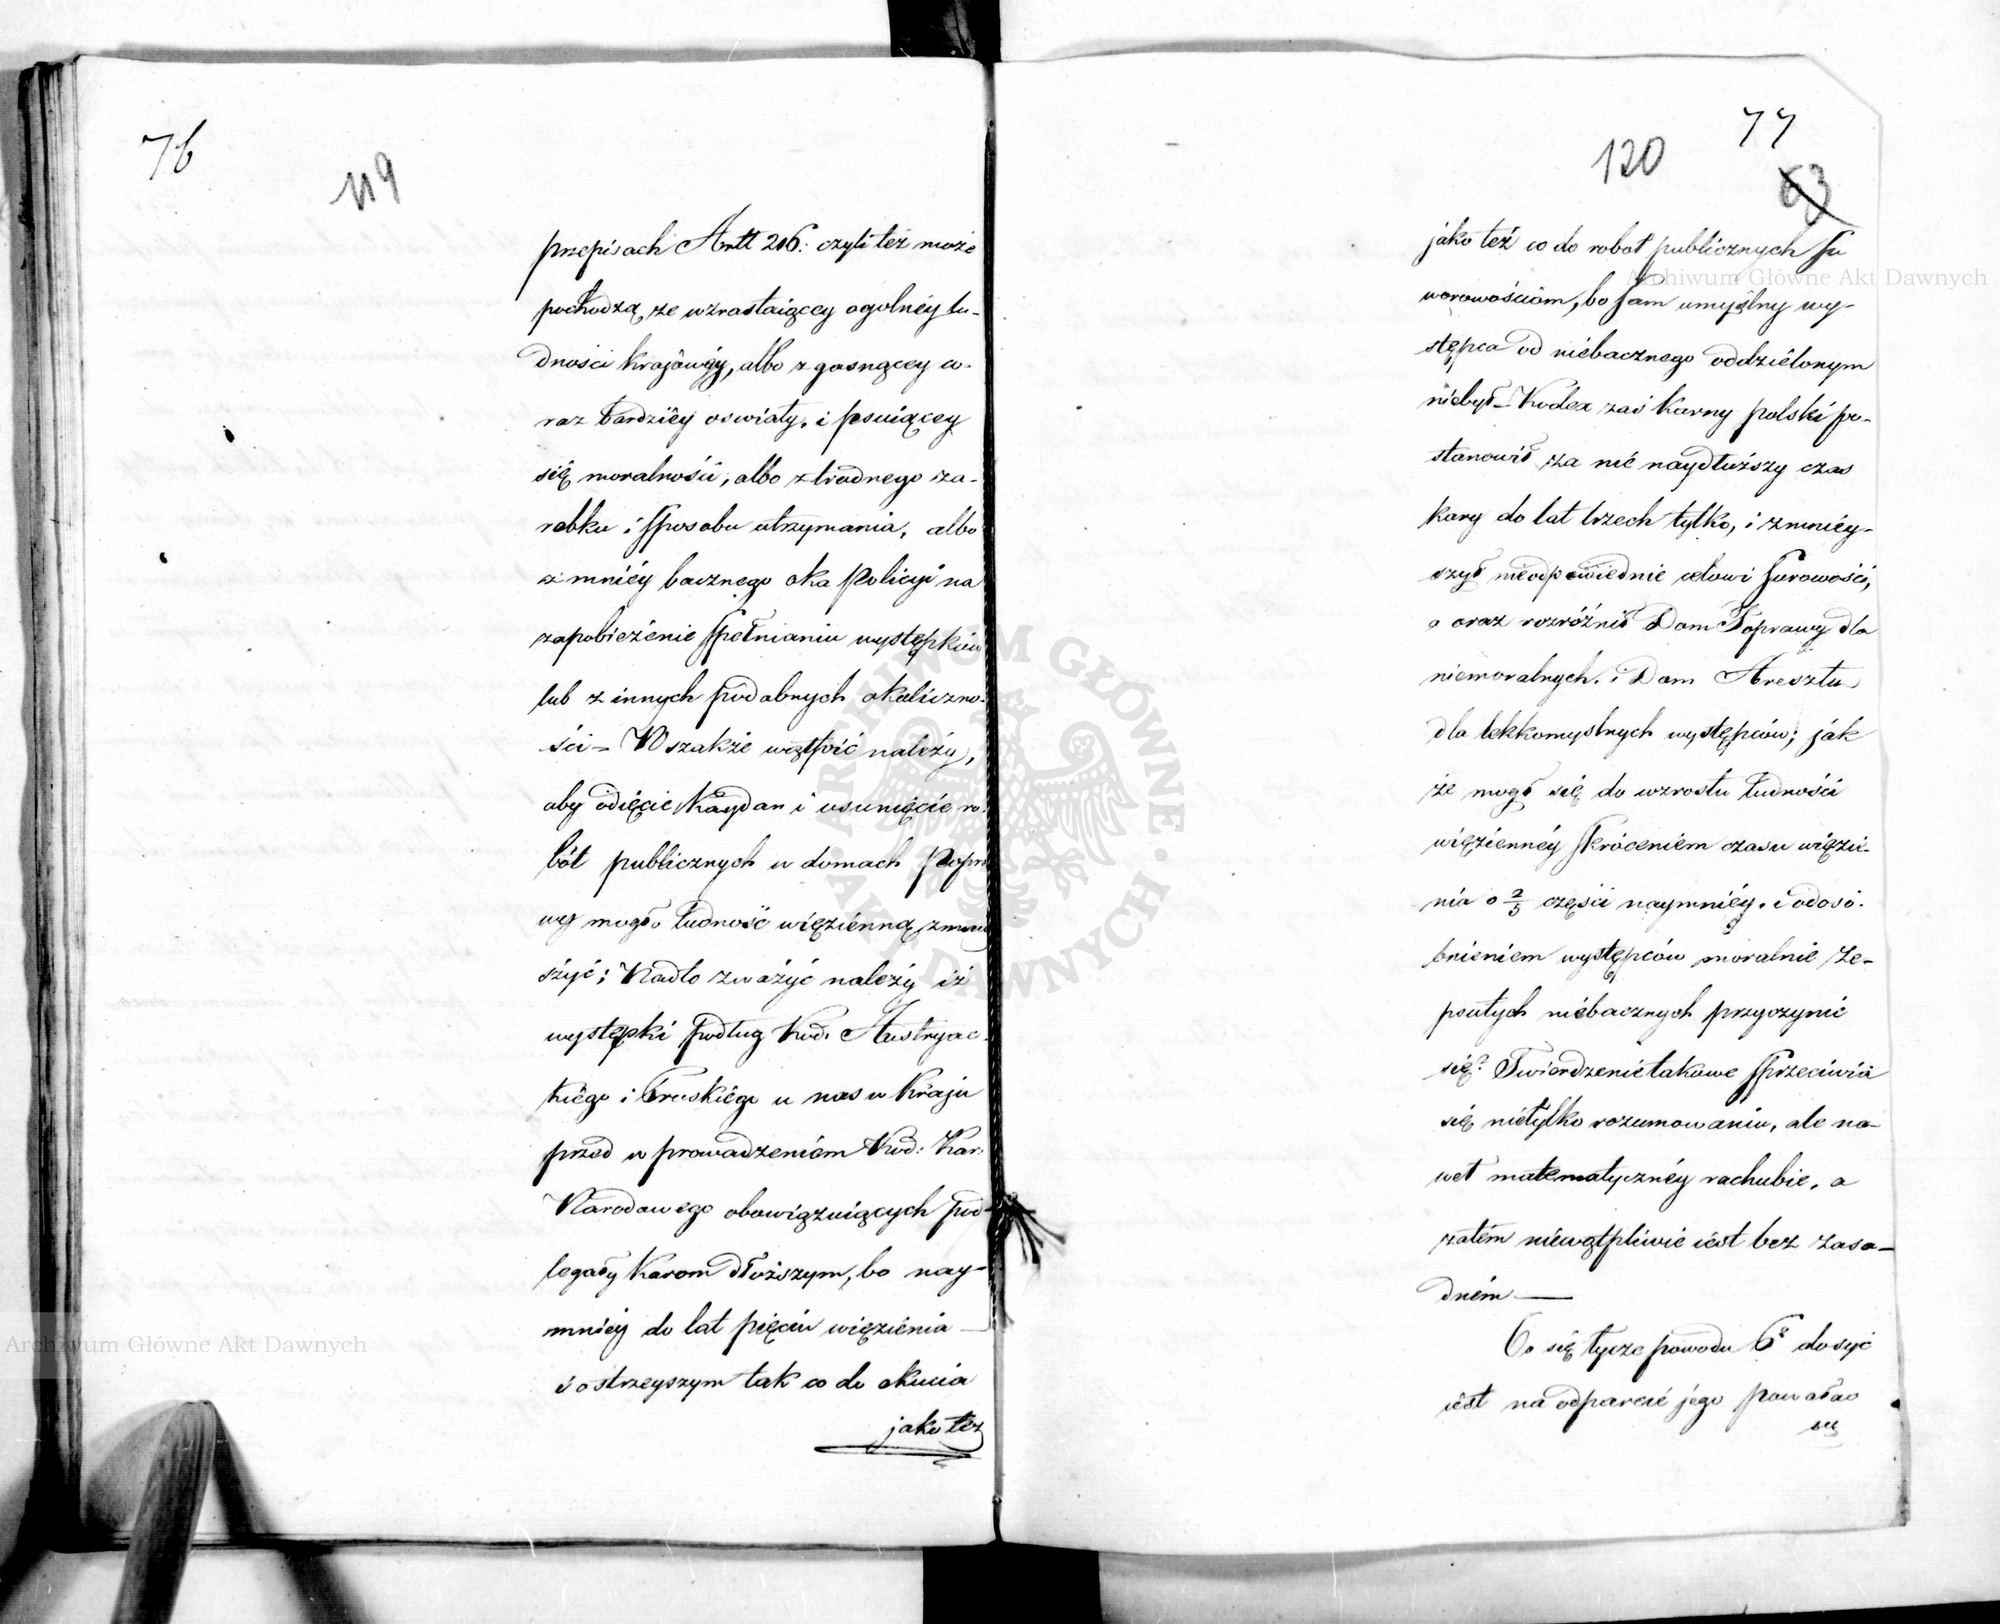 76
119
przepisach Artt 216: czyli też może
pochodzą, ze wzrastaiącey ogolnéy lu-
dności kraiowéy, albo z gasnącey co-
raz bardziéy oswiaty, i psuiącey
się moralności, albo z trudnego za-
robku i sposobu utrzymania, albo
z mniéy bacznego oka Policyi na
zapobieżenie spełnianiu występków
lub z innych podobnych okoliczno-
ści – Wszakże wątpić należy,
aby odięcie Kaydan i usunięcie ro-
bót publicznych w domach Popra
wy mogło ludność więzienną zmniey
szyć; Nadto zważyć należy iż
występki podług Kod. Austryac-
kiégo i Pruskiégo u nas w Kraju
przed w prowadzeniém Kod: Kar:
Narodowego obowiązuiących pod-
legały Karom dłuższym, bo nay-
mniéy do lat pięciu więzienia
i ostrzeyszym tak co do okucia
jako też
77
120
63
jako też co do robot publicznych su
worowościom, bo sam umyślny wy-
stępca od niebacznego oddziélonym
niebył – Kodex zaś Karny polski po-
stanowił za nić naydłuższy czas
kary do lat trzech tylko, i zmniéy-
szył nieodpowiednie celowi surowości,
a oraz rozróżnił Dom Poprawy dla
niemoralnych. i Dom Aresztu
dla lekkomyslnych występców; jak
że mogł się do wzrostu ludności
więziennéy skróceniem czasu więzie-
nia o 2/5 części naymniéy. i odoso-
bnieniem występców moralnie ze-
psutych niebacznych przyczynić
się? Twierdzenie takowe sprzeciwia
się nietylko rozumowaniu, ale na-
wet matematycznéy rachubie, a
zatém niéwątpliwie iest bez zasa-
dném —
Co się tycze powodu 6º dosyć
iest na odparcié jego powołać
się
Archiwum Główne Akt Dawnych
Archiwum Główne Akt Dawnych
ARCHIWUM GŁÓWNE AKT DAWNYCH